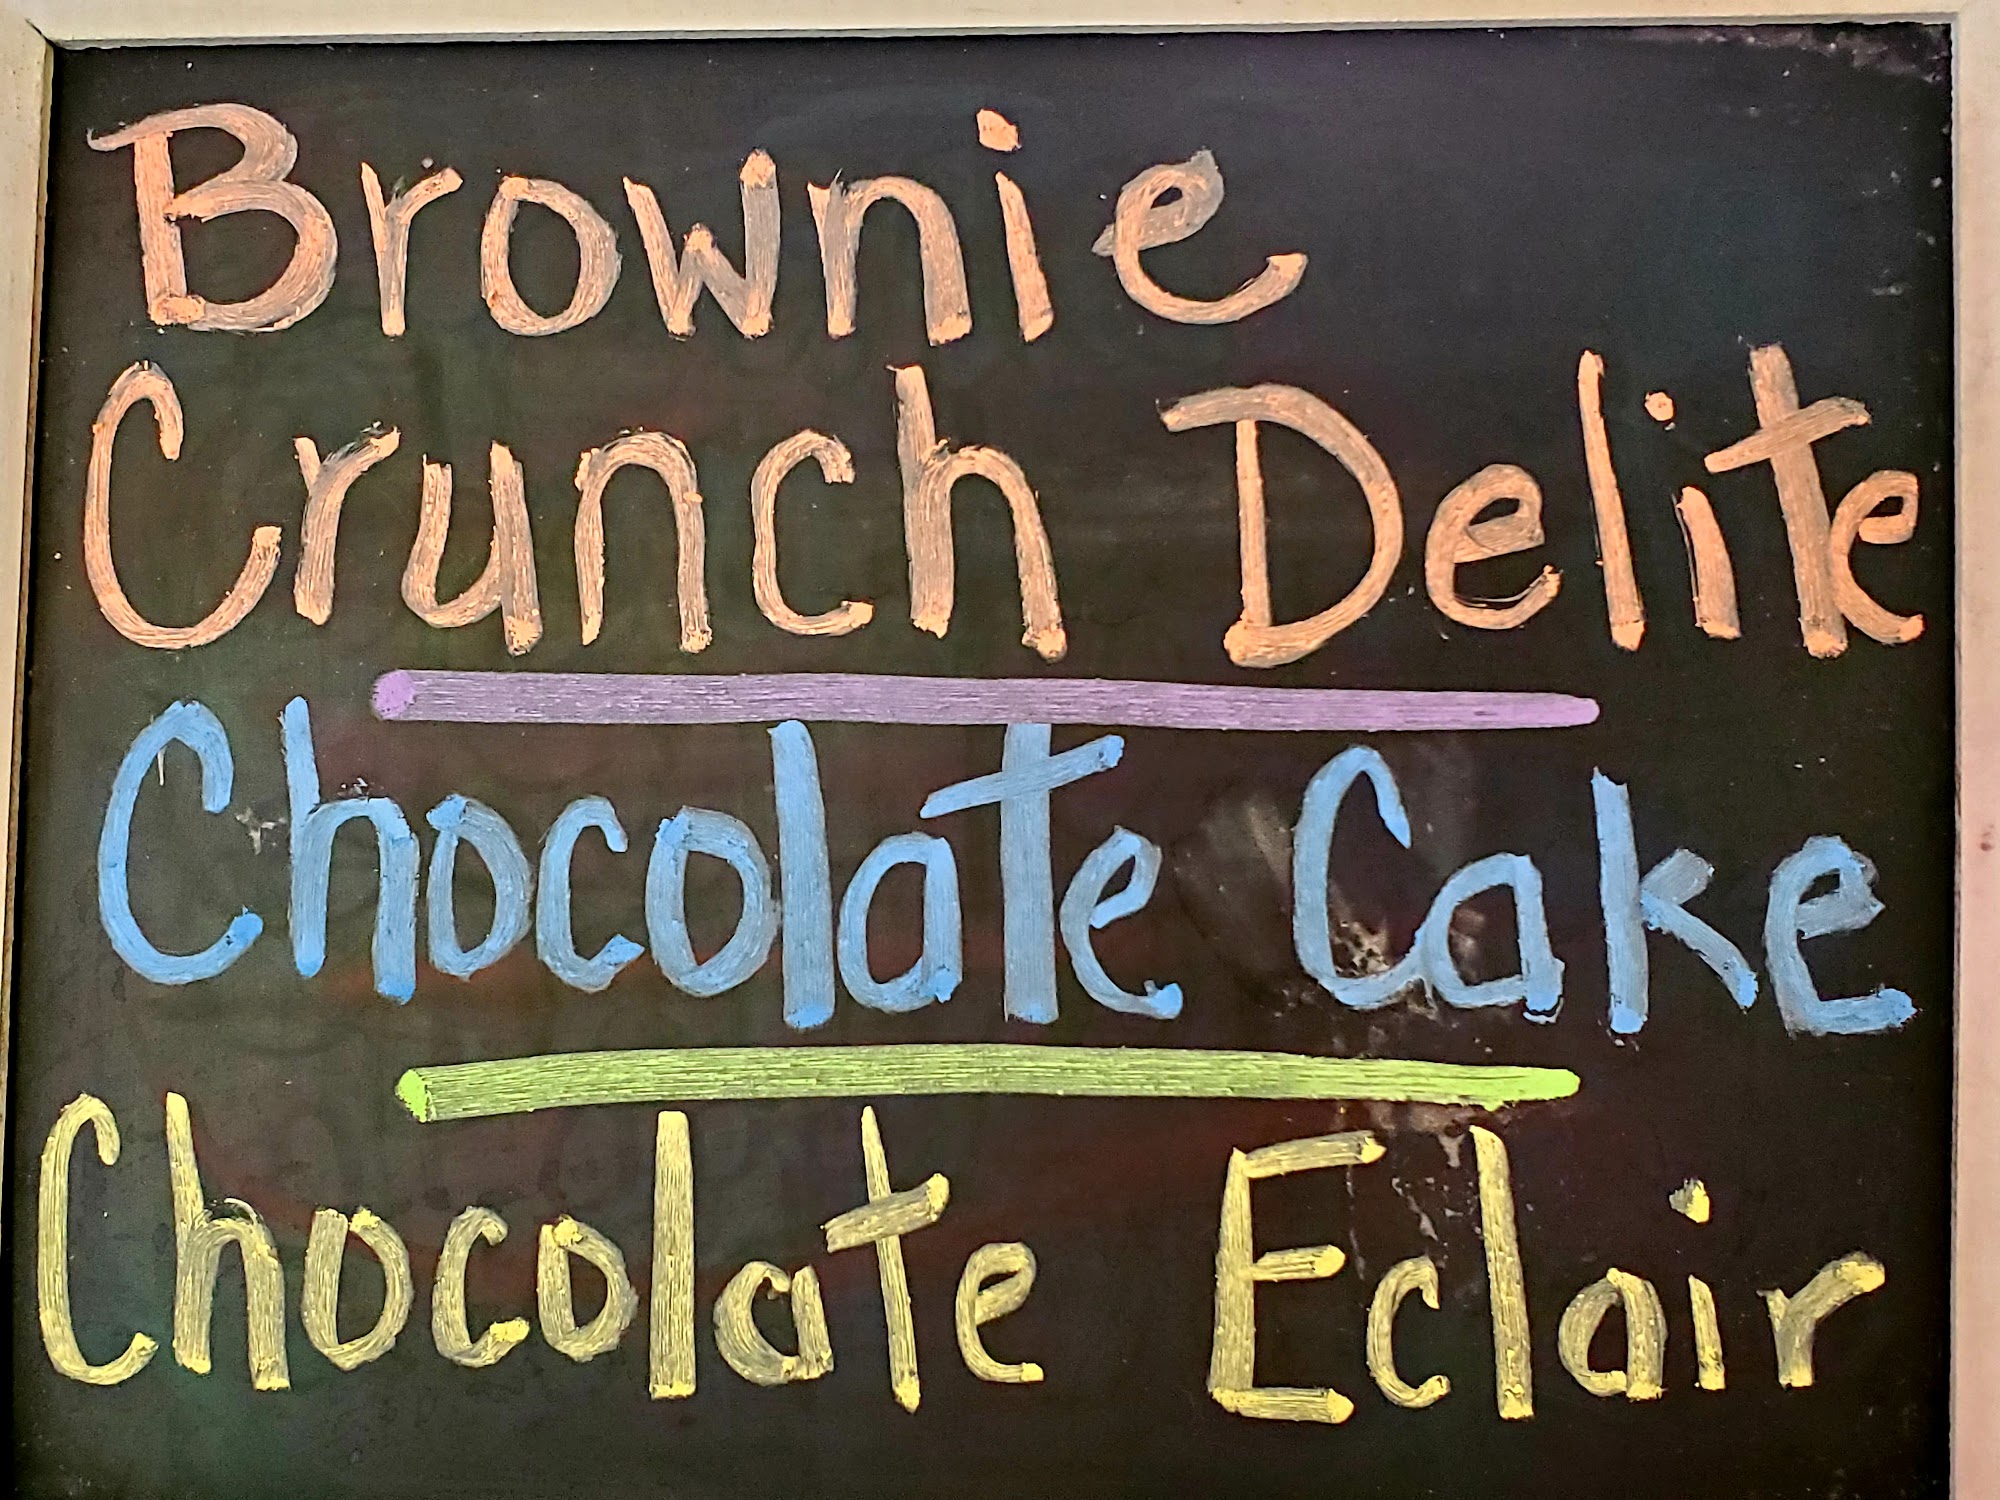 Brownie
Crunch Delite
Chocolate Cake
Chocolate Eclair